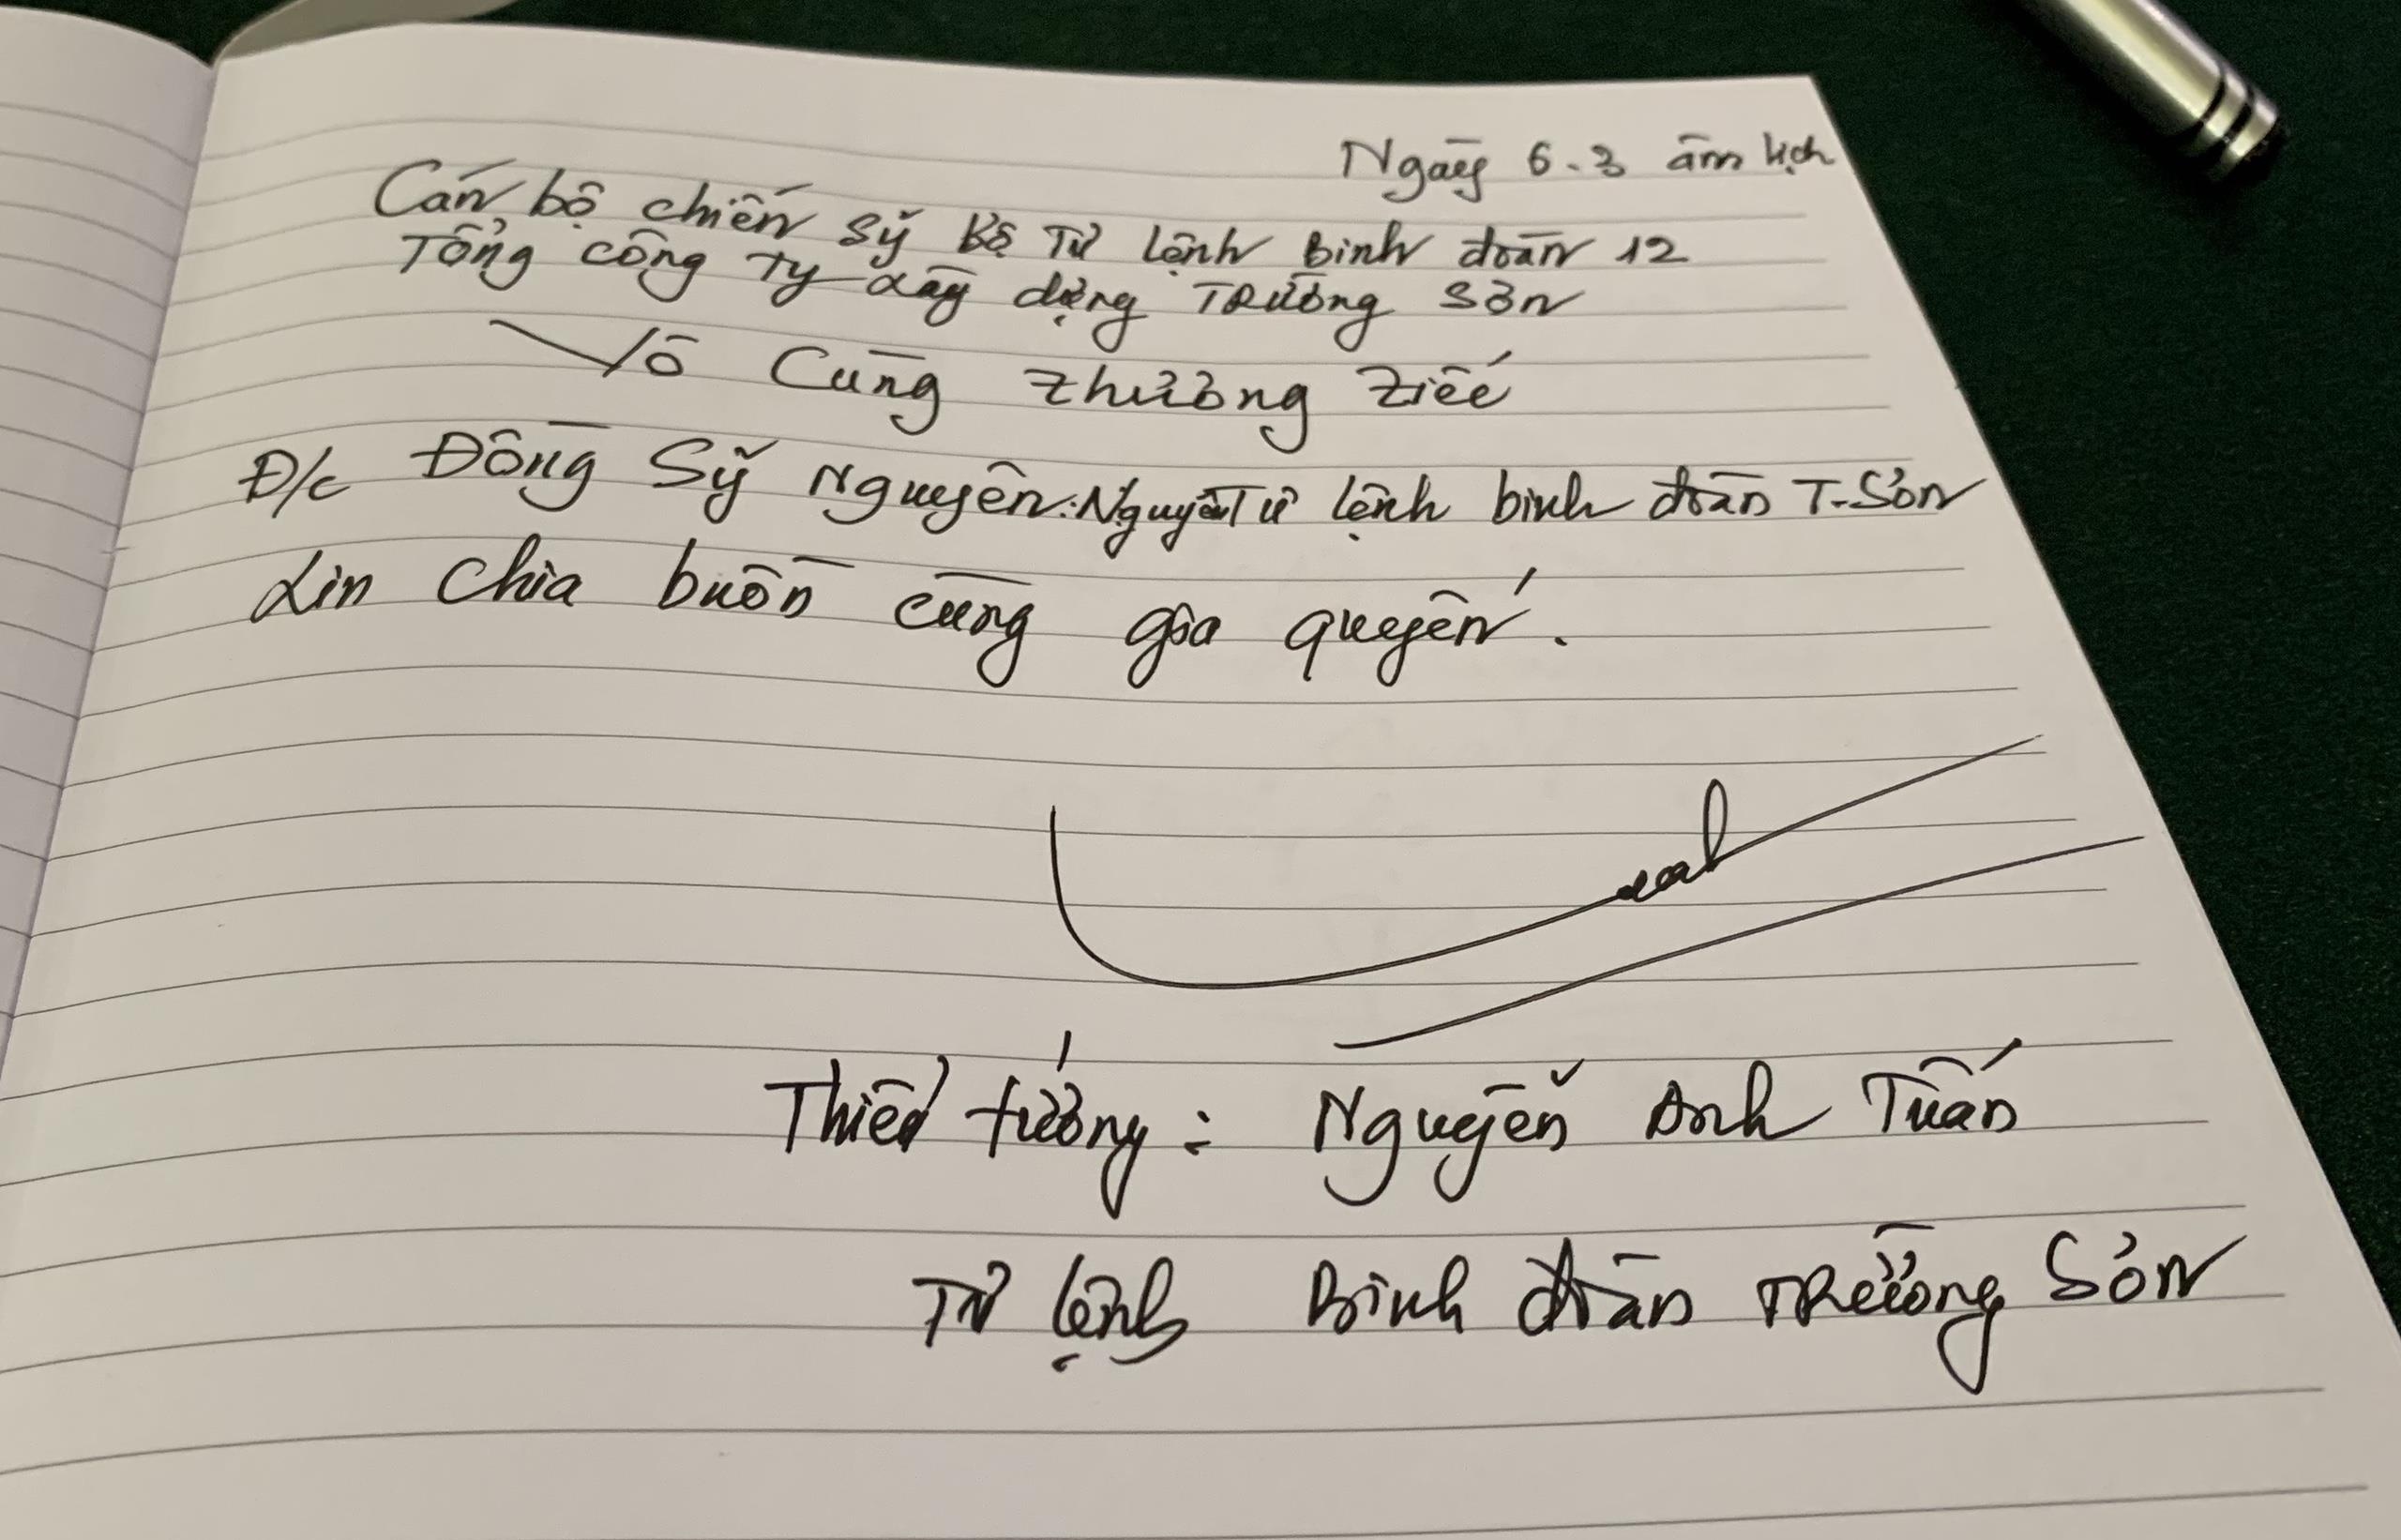 Ngày 6.3 âm lịch
Cán bộ chiến sỹ Bộ Tư lệnh Binh đoàn 12
Tổng công ty xây dựng Trường Sơn
Vô Cùng thương tiếc
Đ/c Đồng Sỹ Nguyên: Nguyên Tư lệnh binh đoàn T-Sơn
Xin chia buồn cùng gia quyến.
Thiếu tướng: Nguyễn Anh Tuấn
Tư lệnh Binh đoàn Trường Sơn